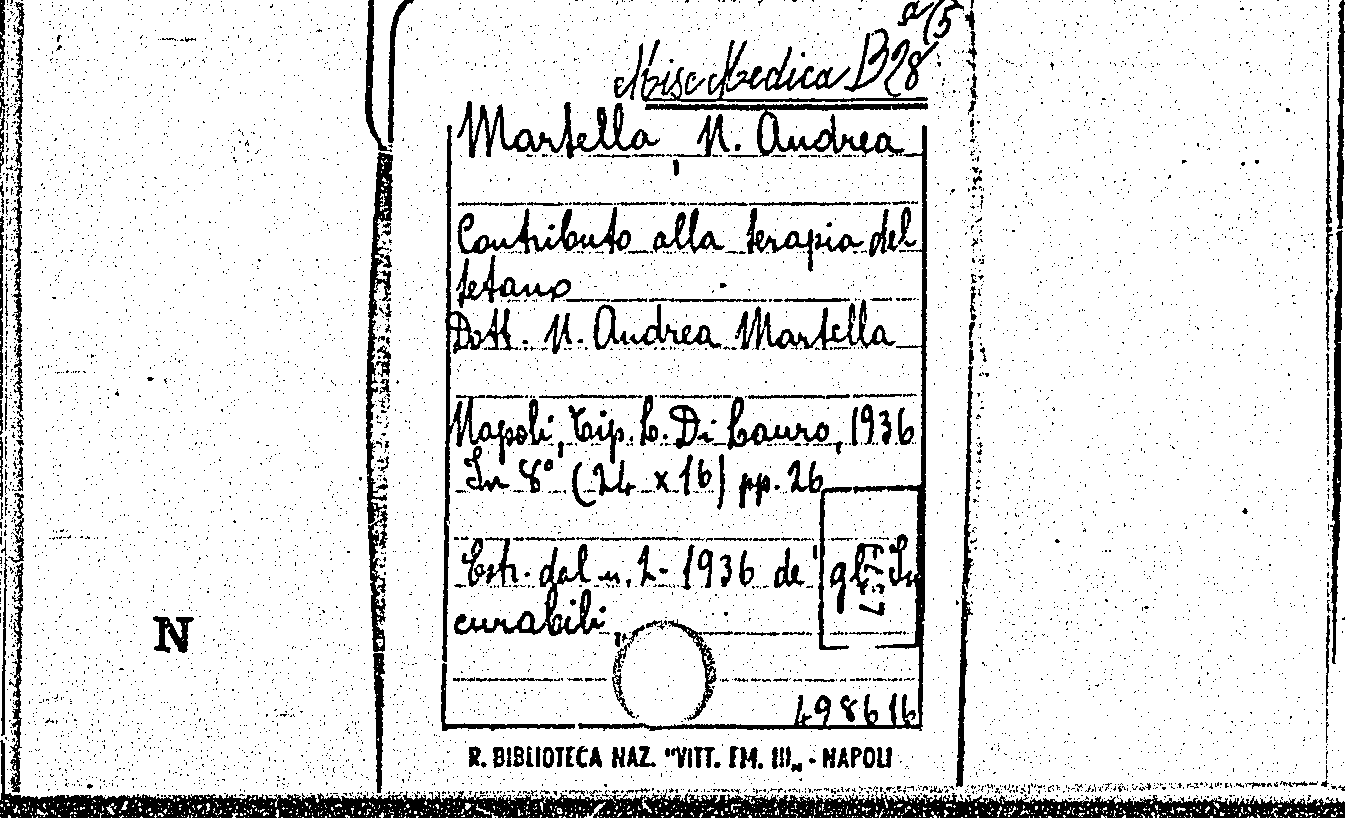 a/5
Misc Medica B 28
Martella, N. Andrea
Contributo alla terapia del
tetano
Dott. N. Andrea Martella
Napoli, Tip. L. Di Lauro, 1936
In 8° (24 x 16) pp. 26
Estr. dal n. 2 - 1936 de "gli In
curabili"
498616
N
R. BIBLIOTECA NAZ. "VITT. EM. III„ - NAPOLI